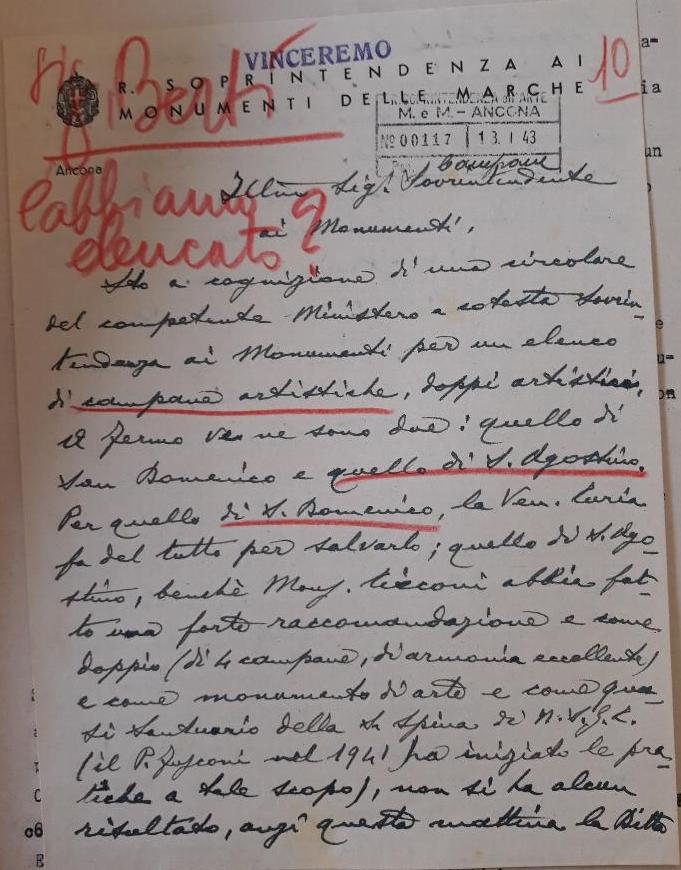 VINCEREMO
Sig. Berti
10
R. SOPRINTENDENZA AI
MONUMENTI DELLE MARCHE
M. e M. - ANCONA
Nº 00117 13.1.43
Campane
Ancona
l'abbiamo
elencato?
Ill.mo Sig. Sovrintendente
ai Monumenti,
Sto a cognizione di una circolare
del competente Ministero e cotesta Sovrin-
tendenza ai Monumenti per un elenco
di campane artistiche, doppi artistici,
a Fermo ve ne sono due: quello di
San Domenico e quello di S. Agostino.
Per quello di S. Domenico, la Ven. Curia
fa del tutto per salvarlo; quello di S. Ago-
stino, benchè Mons. abbia fat-
to una forte raccomandazione e come
doppio (di 4 campane, d'armonia eccellente)
e come monumento d'arte e come qua-
si Santuario della S. Spina di N. S. G. C.
(il P. nel 1941 ha iniziato le pra-
tiche a tale scopo), non si ha alcun
risultato, anzi questa mattina la Ditta